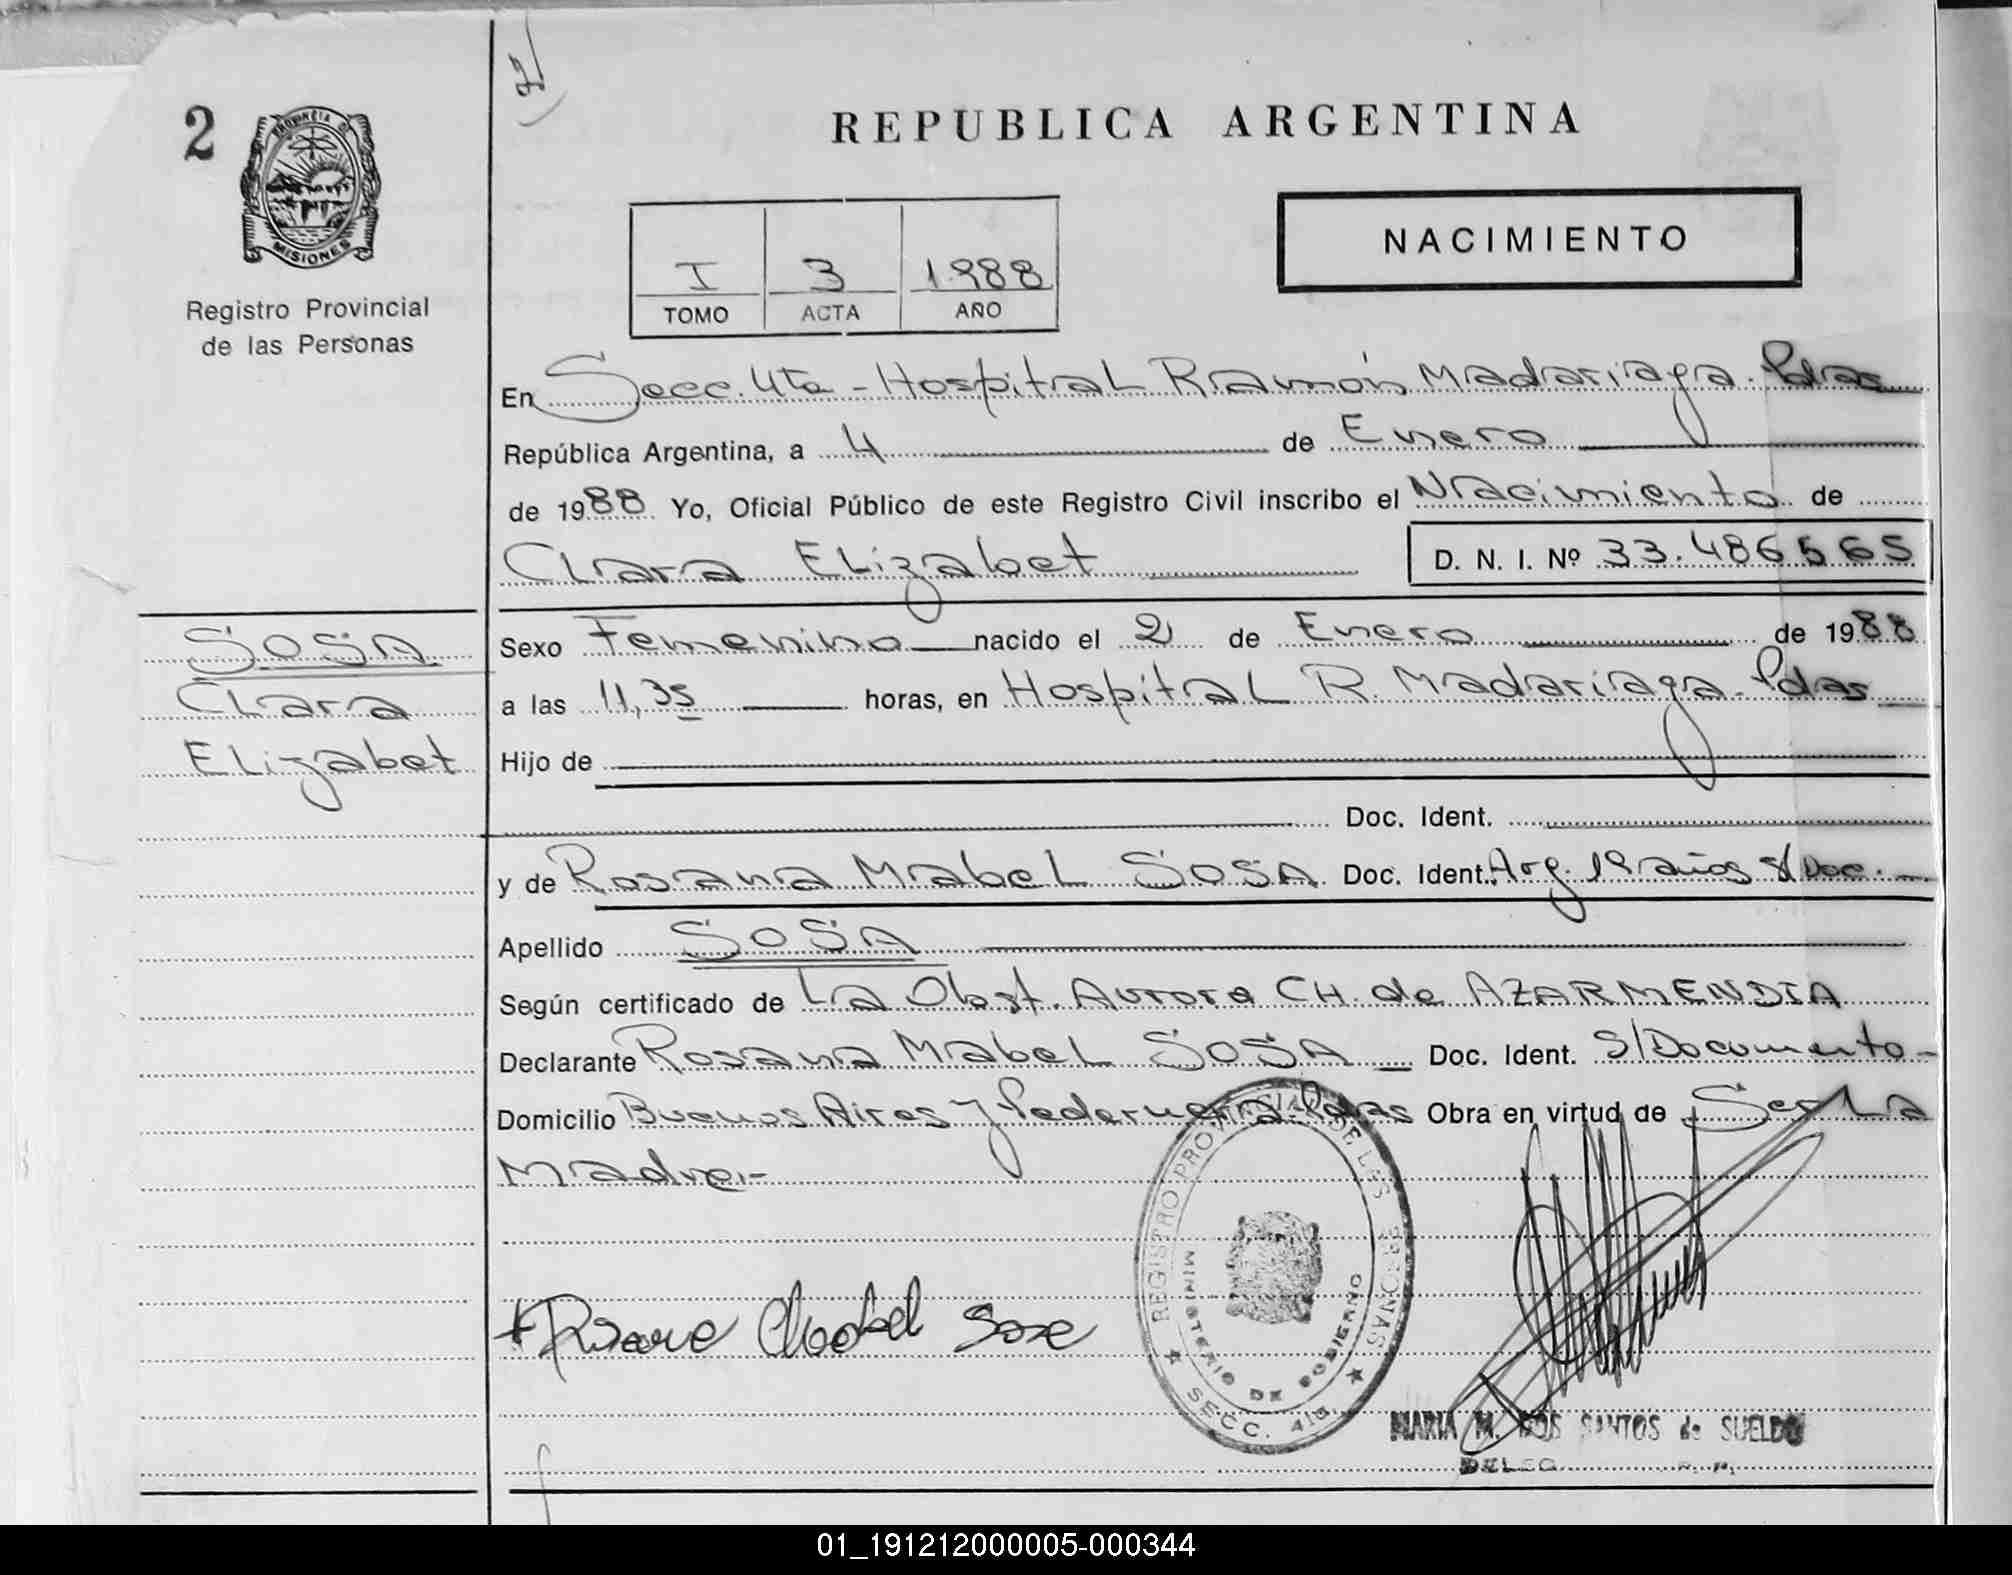 2
PROVINCIA DE
MISIONES
Registro Provincial
de las Personas
REPUBLICA ARGENTINA
NACIMIENTO
I 3 1988
TOMO ACTA AÑO
En Secc. 4ta - Hospital Ramón Madariaga. Pdas
República Argentina, a 4 de Enero
de 1988 Yo, Oficial Público de este Registro Civil inscribo el Nacimiento de
Clara Elizabet D. N. I. Nº 33.486565
SOSA
Clara
Elizabet
Sexo Femenino nacido el 2 de Enero de 1988
a las 11,35 horas, en Hospital R. Madariaga - Pdas
Hijo de
Doc. Ident.
y de Rosana Mabel SOSA Doc. Ident. Arg. 19 años s/Doc.
Apellido SOSA
Según certificado de La Obst. Aurora CH. de AZARMENDIA
Declarante Rosana Mabel SOSA Doc. Ident. S/Documento-
Domicilio Buenos Aires y Pedernera - Pdas Obra en virtud de Ser La
Madre.-
Rosana Mabel Sosa
REGISTRO PROVINCIAL DE LAS PERSONAS
MINISTERIO DE GOBIERNO
SECC. 4ta.
MARIA M. DOS SANTOS de SUELDO
01_191212000005-000344